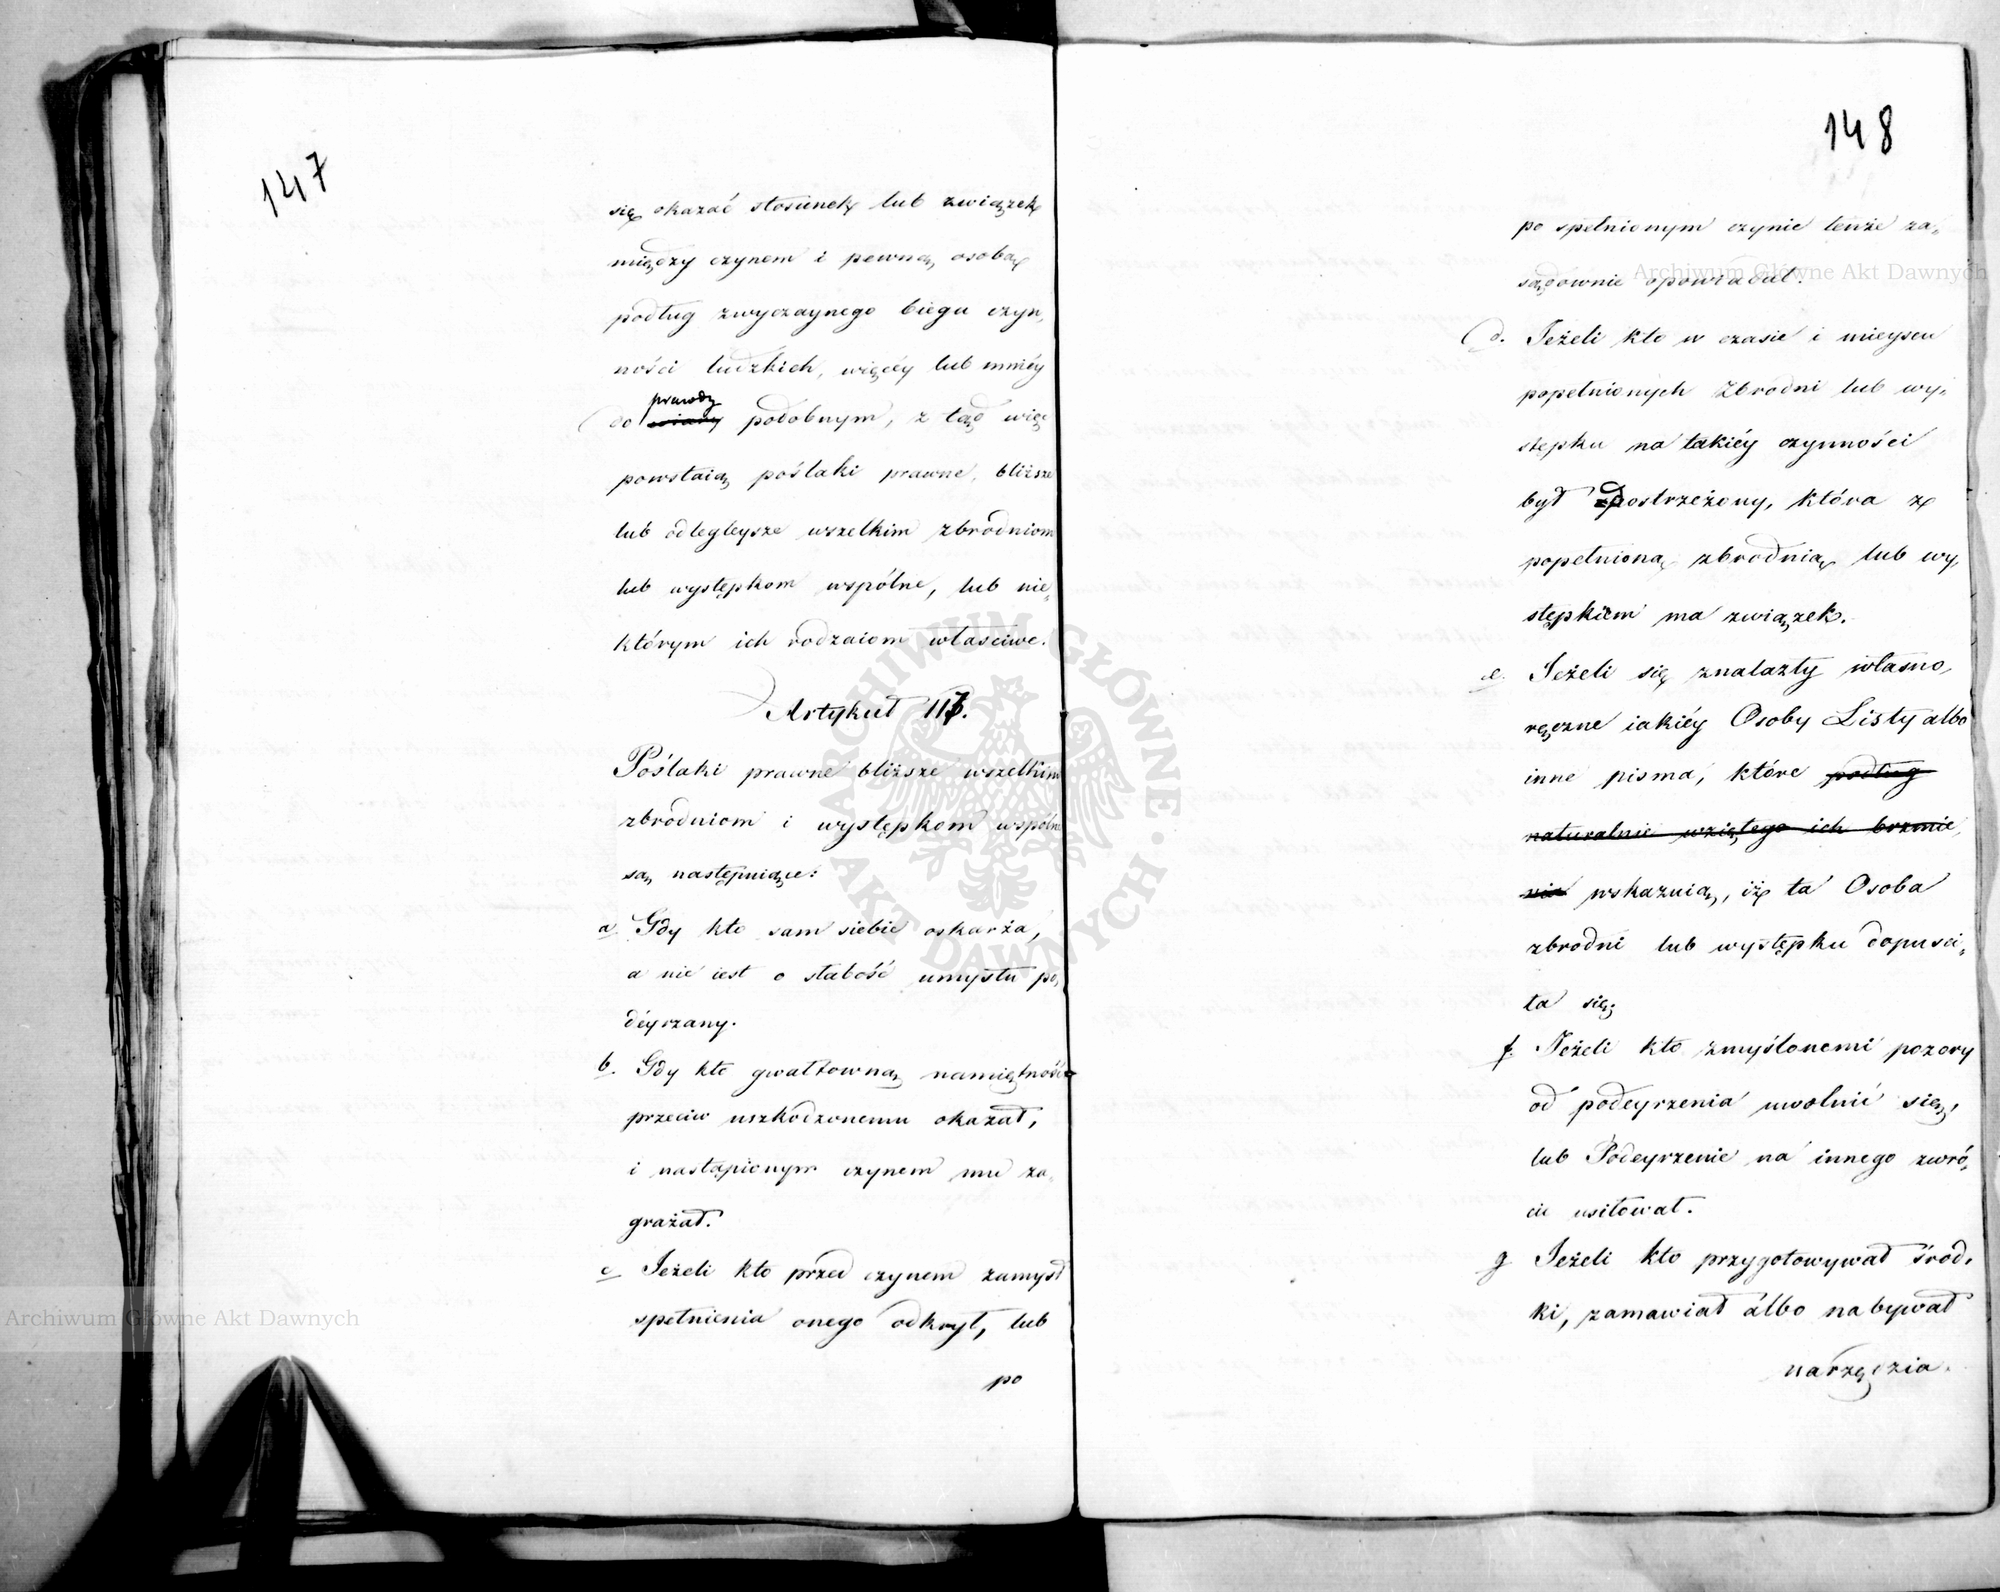 147
się okazać stosunek lub związek
między czynem i pewną osobą
podług zwyczaynego biegu czyn,
ności ludzkich, więcéy lub mniéy
prawdy
do wiary podobnym, z tąd więc
powstaią poślaki prawne, bliższe
lub odległeysze wszelkim zbrodniom
lub występkom wspólne, lub nie,
którym ich rodzaiom właściwe.
Artykuł 117.
Poślaki prawne bliższe wszelkim
zbrodniom i występkom wspólne
są następuiące:
a. Gdy kto sam siebie oskarża,
a nie iest o słabość umysłu po,
déyrzany.
b. Gdy kto gwałtowną namiętność
przeciw uszkodzonemu okazał,
i nastąpionym czynem mu za,
grażał.
c. Jeżeli kto przed czynem zamysł
spełnienia onego odkrył, lub
po
148
po spełnionym czynie tenże za,
sądownie opowiadał.
d. Jeżeli kto w czasie i mieyscu
popełnionych Zbrodni lub wy,
stępku na takiéy czynności
był dostrzeżony, która z
popełnioną zbrodnią lub wy,
stępkiem ma związek.
e. Jeżeli się znalazły własno,
ręczne iakiéy Osoby Listy albo
inne pisma, które podług
naturalnie wziętego ich brzmie,
nia wskazuią, iż ta Osoba
zbrodni lub występku dopuści,
ła się;
f. Jeżeli kto zmyślonemi pozory
od podeyrzenia uwolnić się,
lub Podeyrzenie na innego zwró,
cić usiłował.
g Jeżeli kto przygotowywał środ,
ki, zamawiał albo nabywał
narzędzia.
Archiwum Główne Akt Dawnych
Archiwum Główne Akt Dawnych
ARCHIWUM GŁÓWNE · AKT DAWNYCH ·